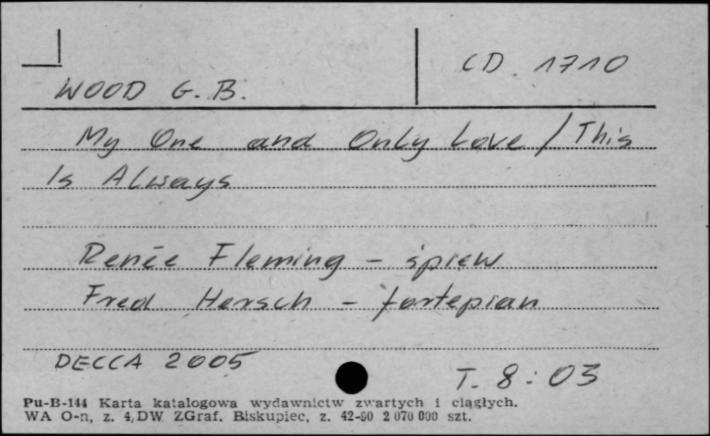 CD 1710
WOOD G.B.
My One and Only Love / This
Is Always
Renée Fleming - śpiew
Fred Hersch - fortepian
DECCA 2005
T. 8:03
Pu-B-144 Karta katalogowa wydawnictw zwartych i ciągłych.
WA O-n, z. 4, DW ZGraf. Biskupiec, z. 42-90 2 070 000 szt.